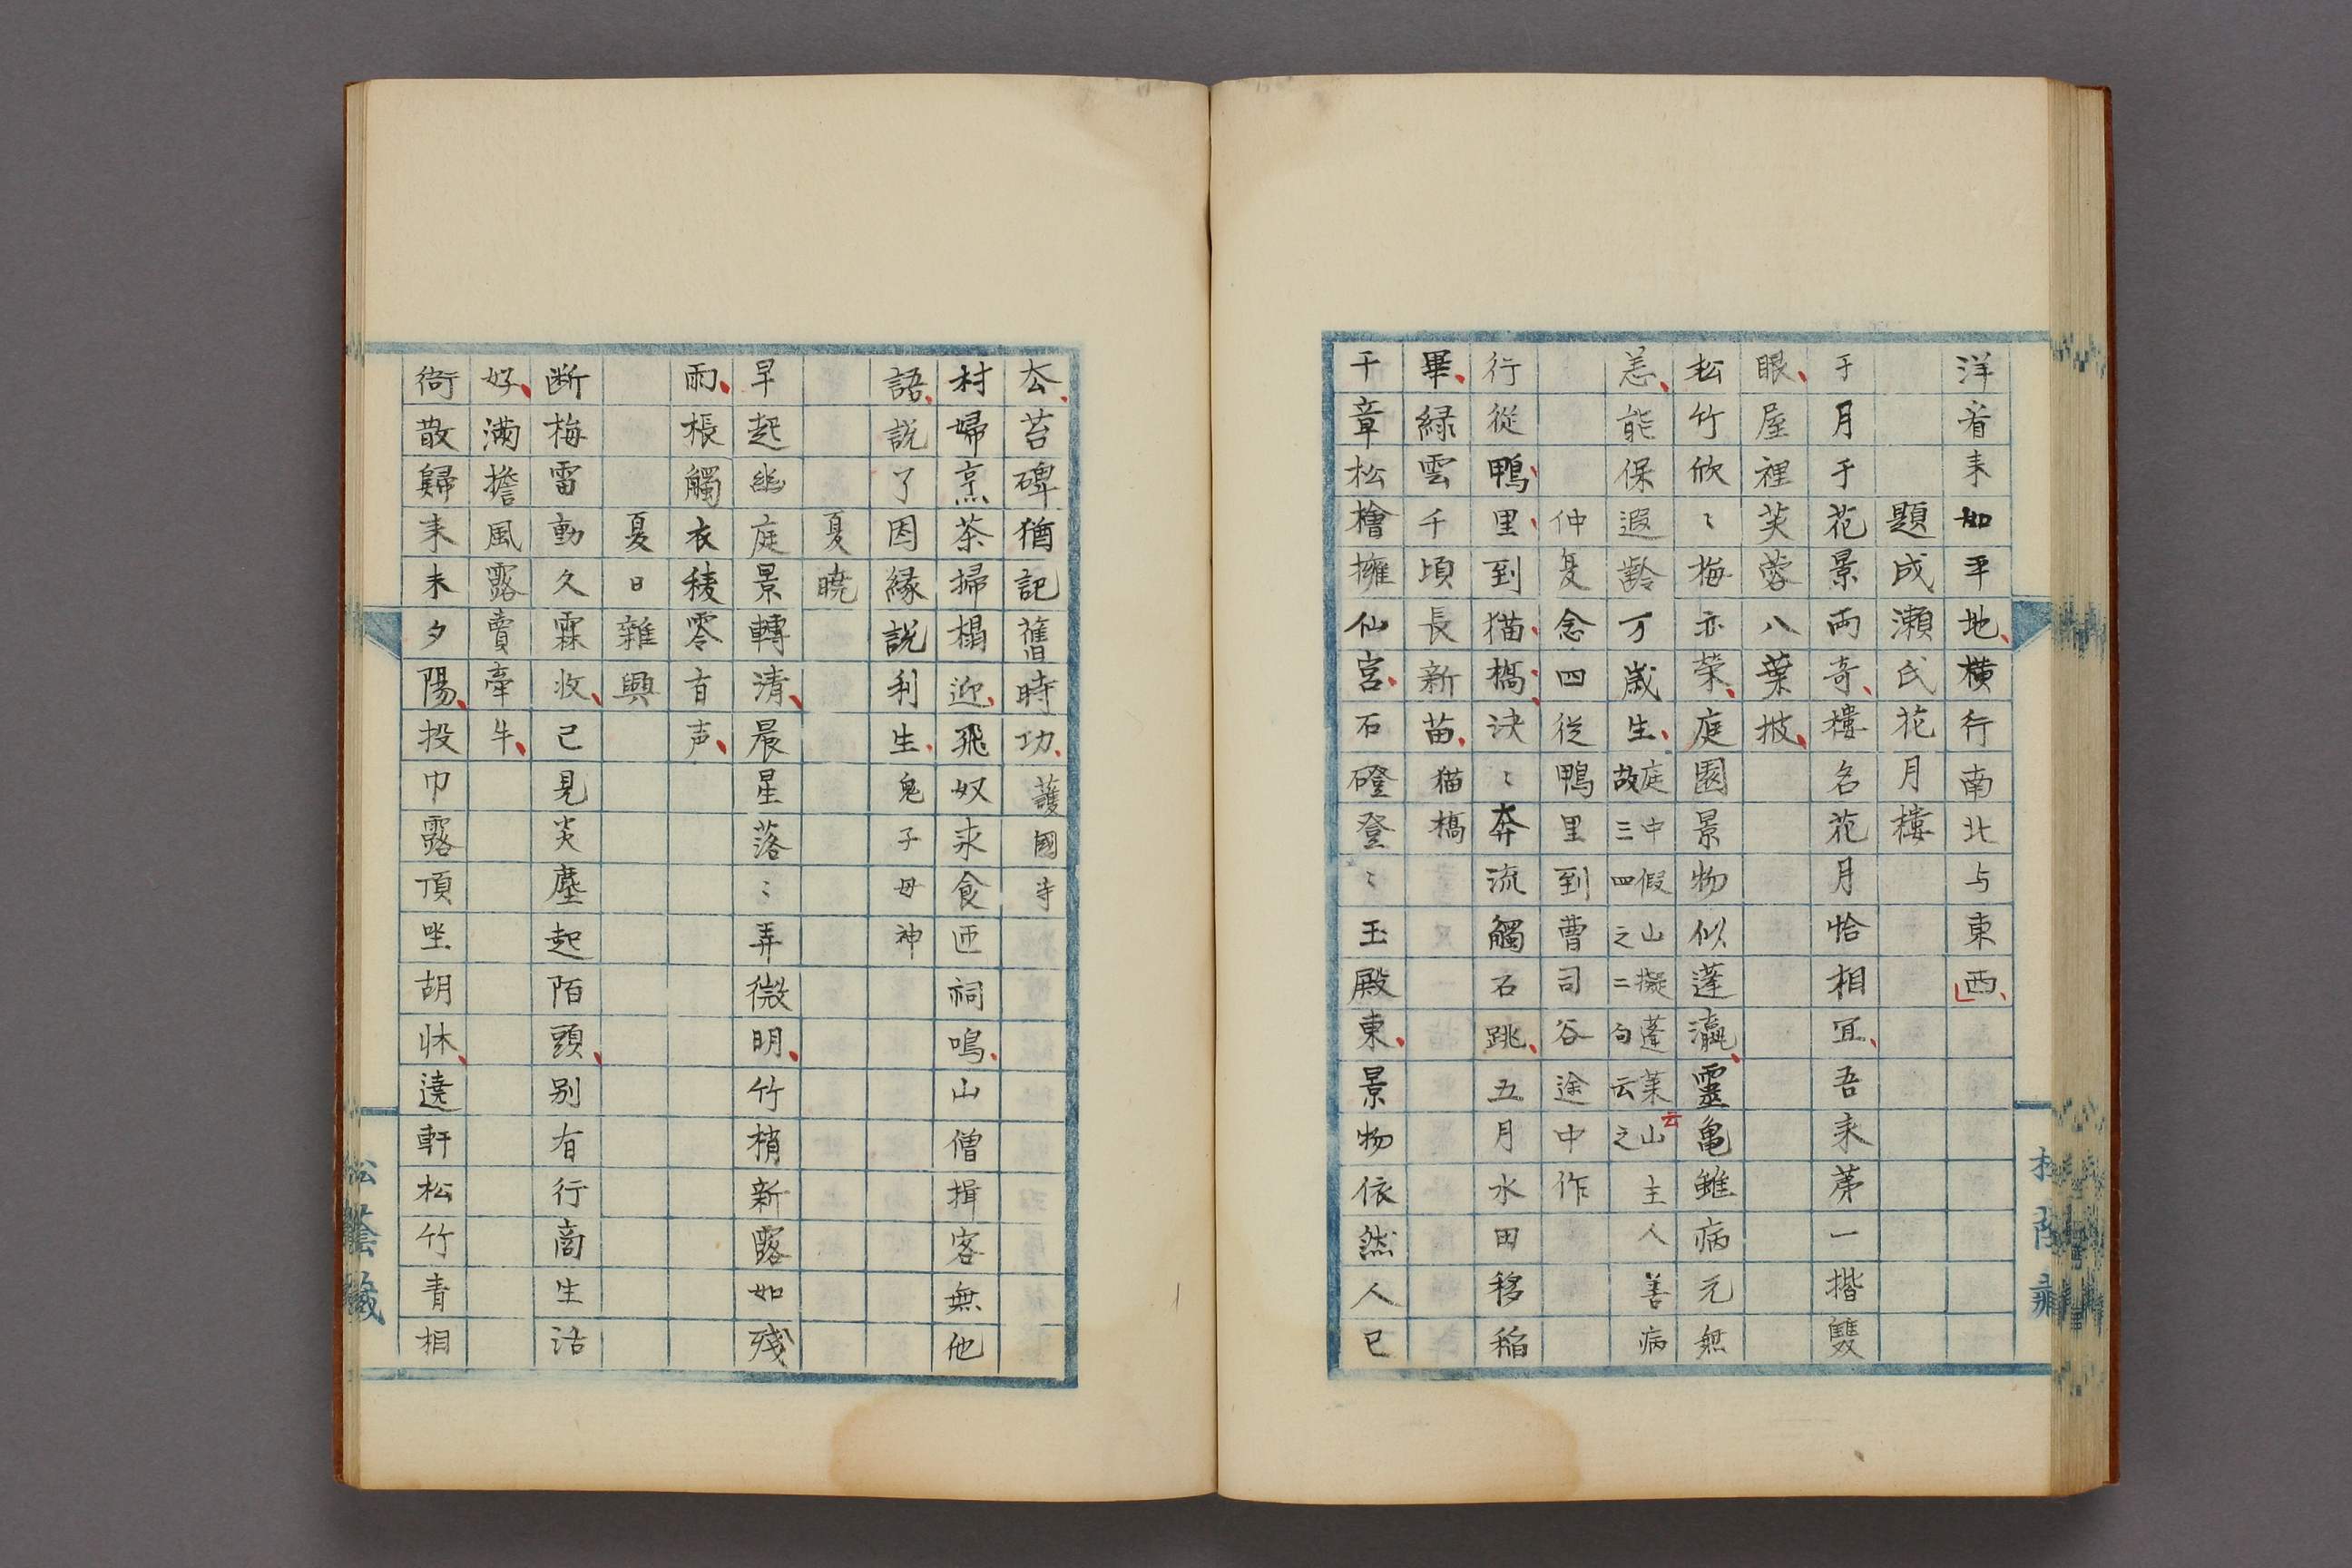 洋看来如平地横行南北与東西
題成瀬氏花月樓
于月于花景両奇樓名花月恰相宜吾来第一揩雙
眼屋裡芙蓉八葉披
松竹欣〻梅亦栄庭園景物似蓬瀛靈亀雖病元無
恙能保遐齡万歳生庭中假山擬蓬莱山云主人善病
故三四之二句云之
仲夏念四従鴨里到曹司谷途中作
行従鴨里到猫橋決〻奔流觸石跳五月水田移稲
畢緑雲千頃長新苗猫橋
千章松檜擁仙宮石磴登〻玉殿東景物依然人已
厺苔碑猶記舊時功護國寺
村婦烹茶掃榻迎飛奴求食匝祠鳴山僧揖客無他
語説了因縁説利生鬼子母神
夏曉
早起幽庭景轉清晨星落〻弄微明竹梢新露如殘
雨棖觸衣稜零有声
夏日雜興
断梅雷動久霖收已見炎塵起陌頭別有行商生活
好満擔風露賣牽牛
衙散歸来未夕陽投巾露頂坐胡牀遶軒松竹青相